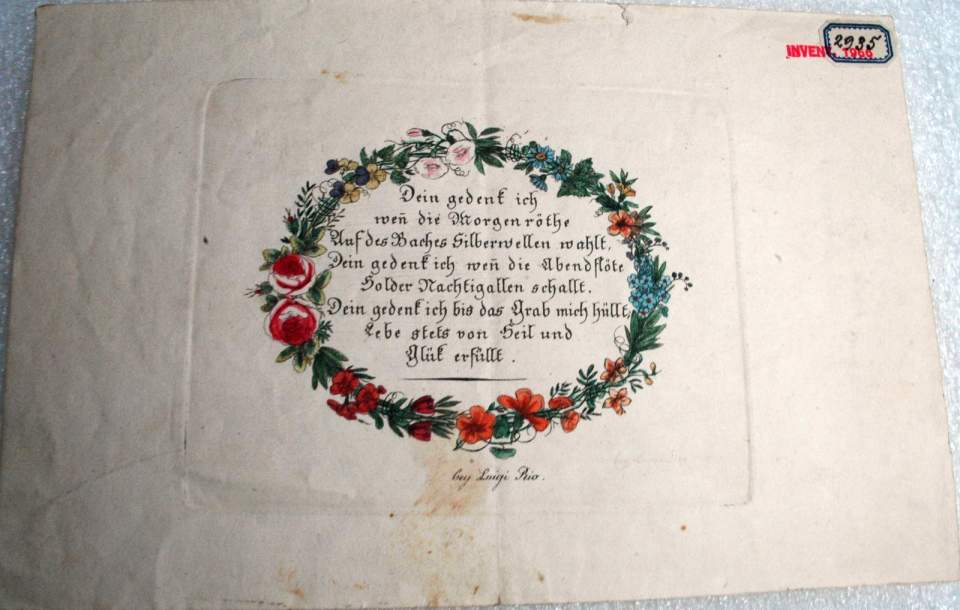 2935
INVENT. 1966
Dein gedenk ich
weñ die Morgenröthe
Auf des Baches Silberwellen wahlt,
Dein gedenk ich weñ die Abendflöte
Holder Nachtigallen schallt.
Dein gedenk ich bis das Grab mich hüllt,
Lebe stets von Heil und
Glük erfüllt.
bey Luigi Rio.